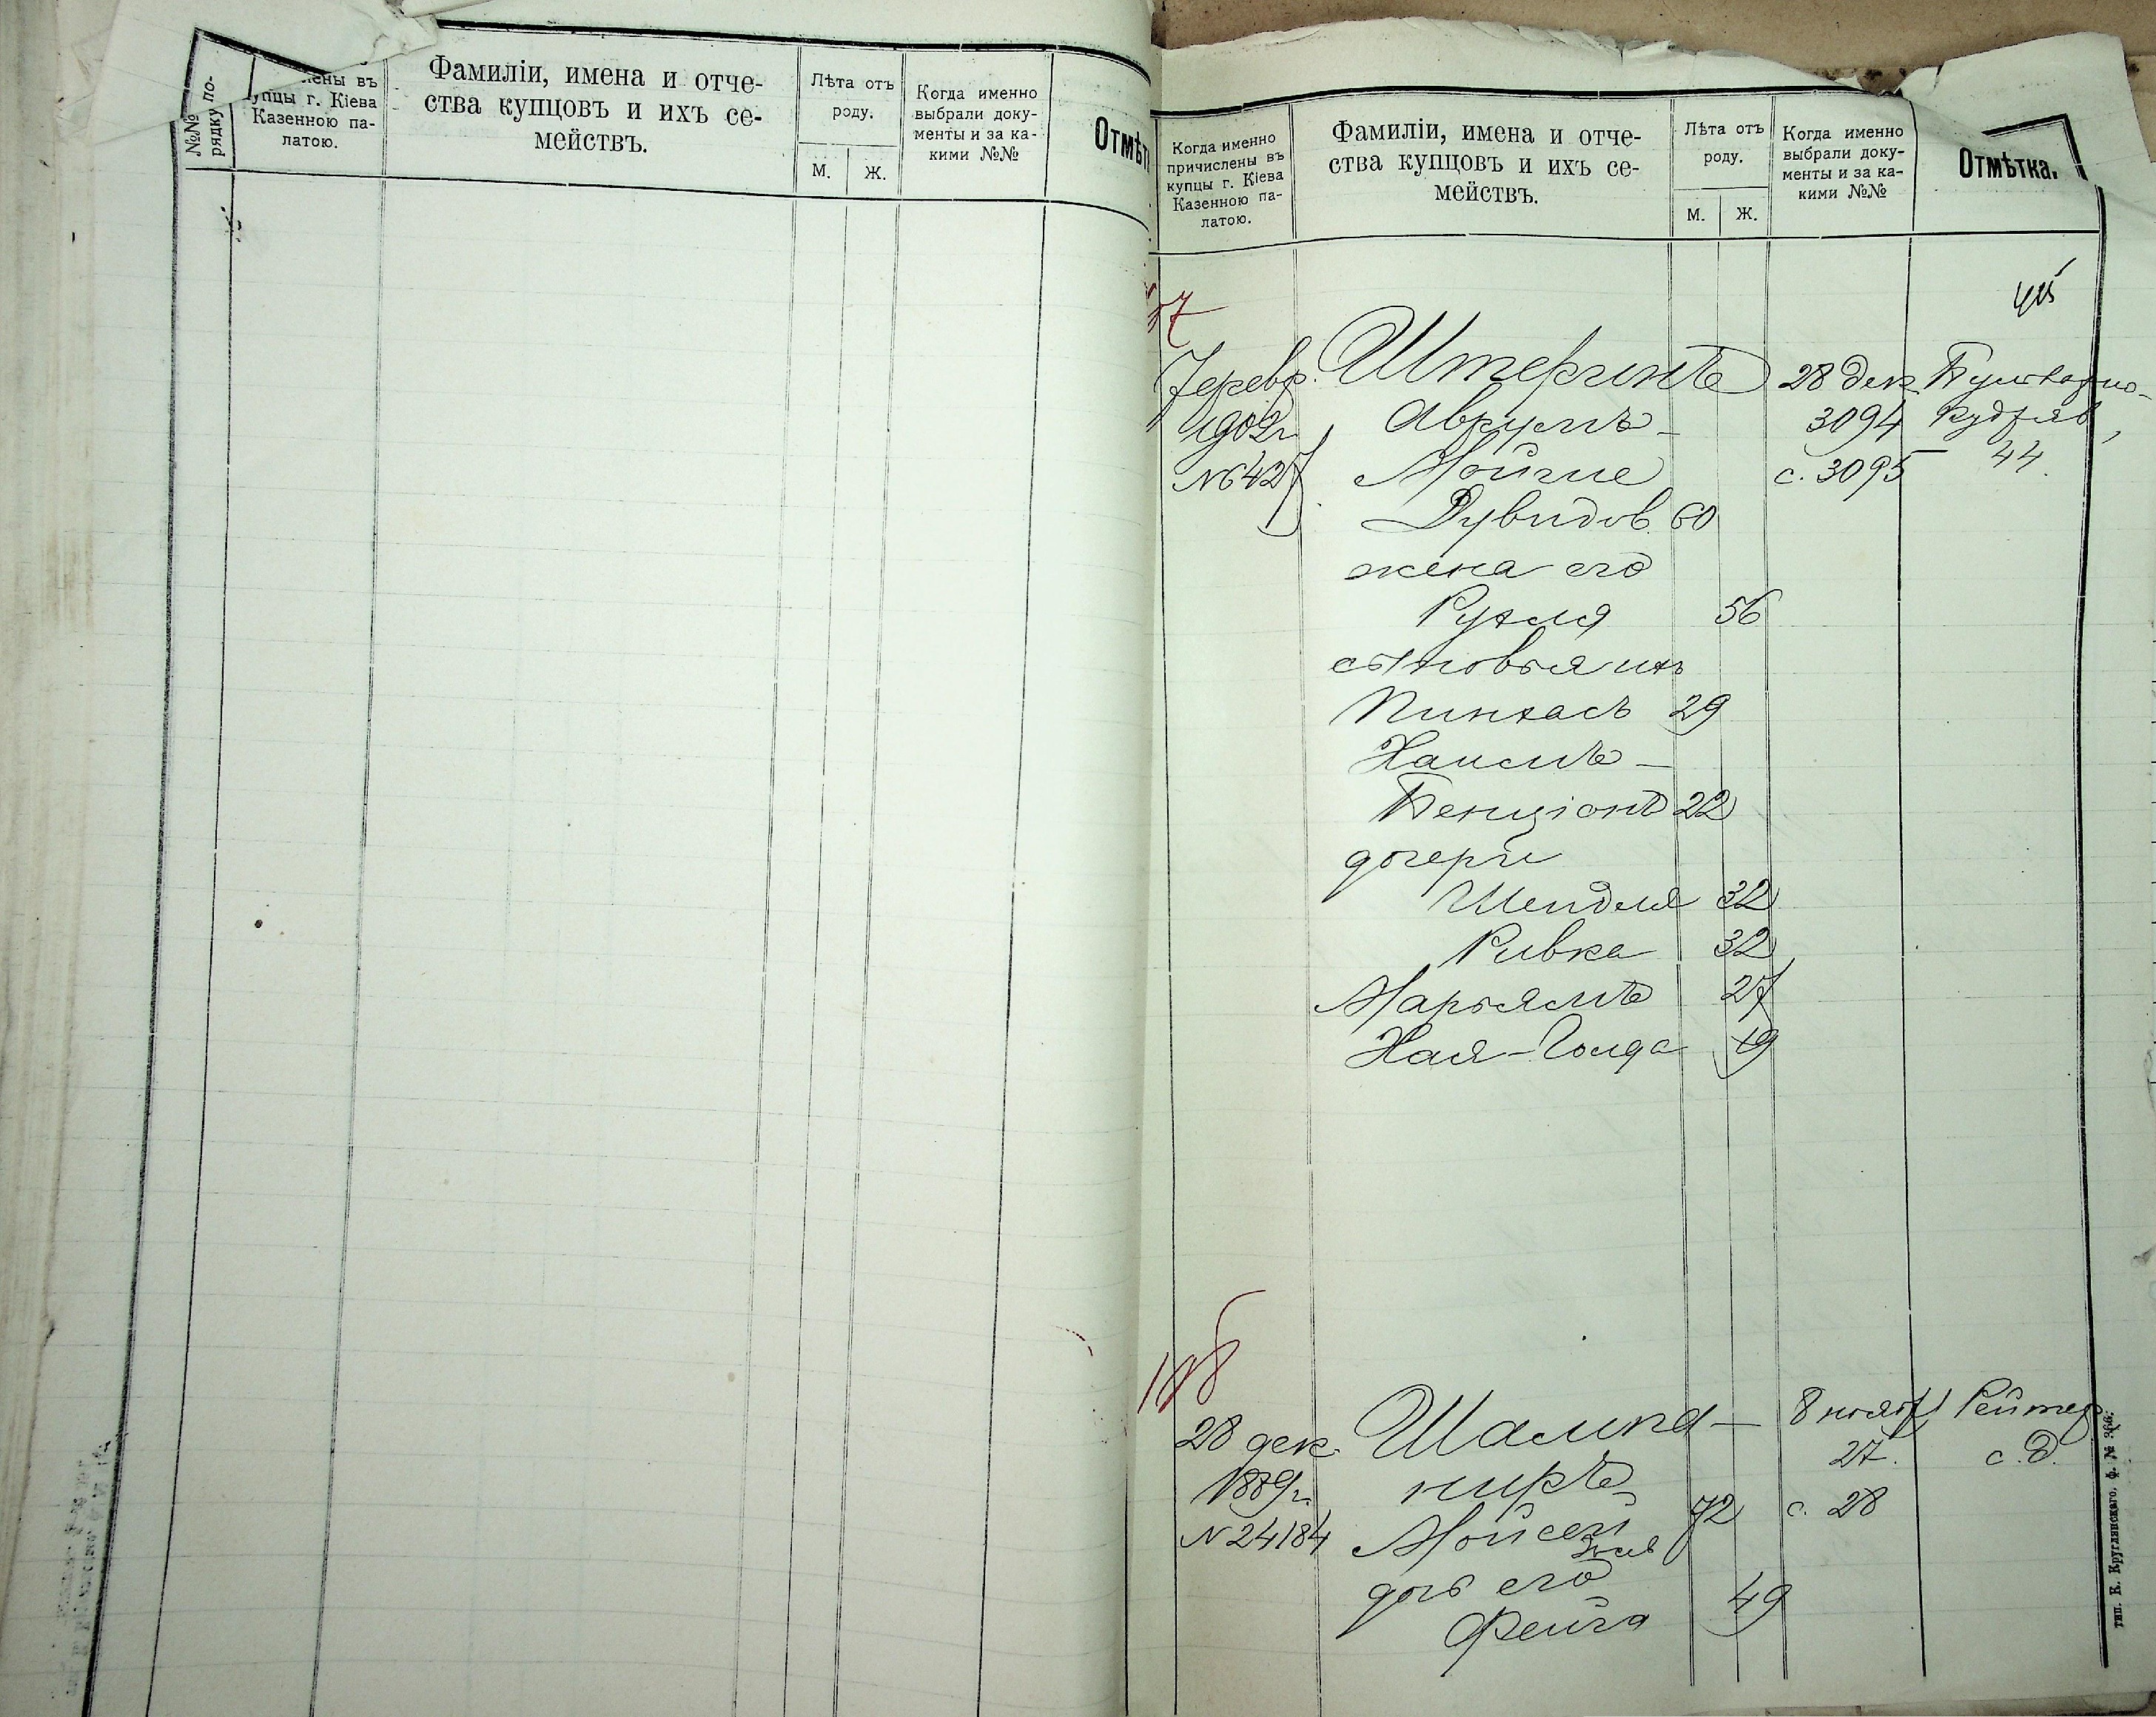 №№ по-
рядку
лены въ
упцы г. Кіева
Казенною па-
латою.
Фамиліи, имена и отче-
ства купцовъ и ихъ се-
мействъ.
Лѣта отъ
роду.
М.
Ж.
Когда именно
выбрали доку-
менты и за ка-
кими №№
Отмѣт
Когда именно
причислены въ
купцы г. Кіева
Казенною па-
латою.
Фамиліи, имена и отче-
ства купцовъ и ихъ се-
мействъ.
Лѣта отъ
роду.
М.
Ж.
Когда именно
выбрали доку-
менты и за ка-
кими №№
Отмѣтка.
7 февр.
1902 г.
№ 427
28 дек.
3094
с. 3095
Бульварно-
Кудряв,
44.
Аврумъ-
Мойше
Дувидов. 60
жена его
Рухля 56
сыновья ихъ
Пинхасъ 29
Хаимъ-
Бенціонъ 22
дочери
Шендля 32
Ривка 32
Марьямъ 27
Хая-Голда 19
28 дек.
1889 г.
№ 24184
Шалика-
ниръ
Мойсей 72
дочь его
Фейга 49
8 нояб.
27.
с. 28
Рейтер
с. д.
тип. К. Круглянскаго, ф. №